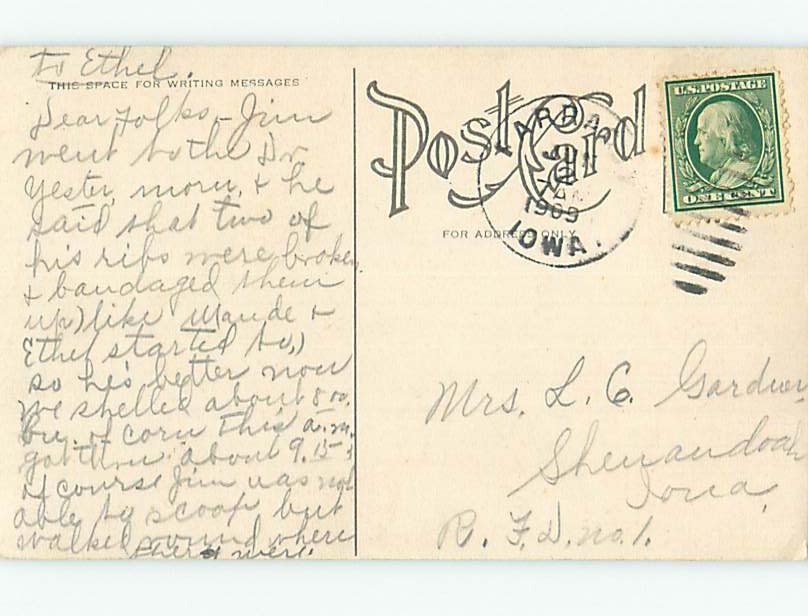 to Ethel.
THIS SPACE FOR WRITING MESSAGES
Dear folks, - Jim
went to the Dr.
yester. morn. & he
said that two of
his ribs were broken
& bandaged them
up) like Maude &
Ethel started to,)
so he's better now
we shelled about 800
bu. of corn this a.m.
got thru about 9.15
of course Jim was not
able to scoop but
walked around where
they were.
Post Card
FOR ADDRESS ONLY
1909
IOWA.
U.S. POSTAGE
ONE CENT
Mrs. L. C. Gardner
Shenandoah
Iowa,
R. F. D. no. 1.